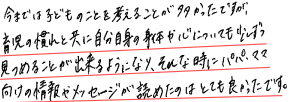 今までは子どものことを考えることが多かったですが、
育児の慣れと共に自分自身の身体や心についても少しずつ
見つめることが出来るようになり、そんな時にパパ、ママ
向けの情報やメッセージが読めたのはとても良かったです。